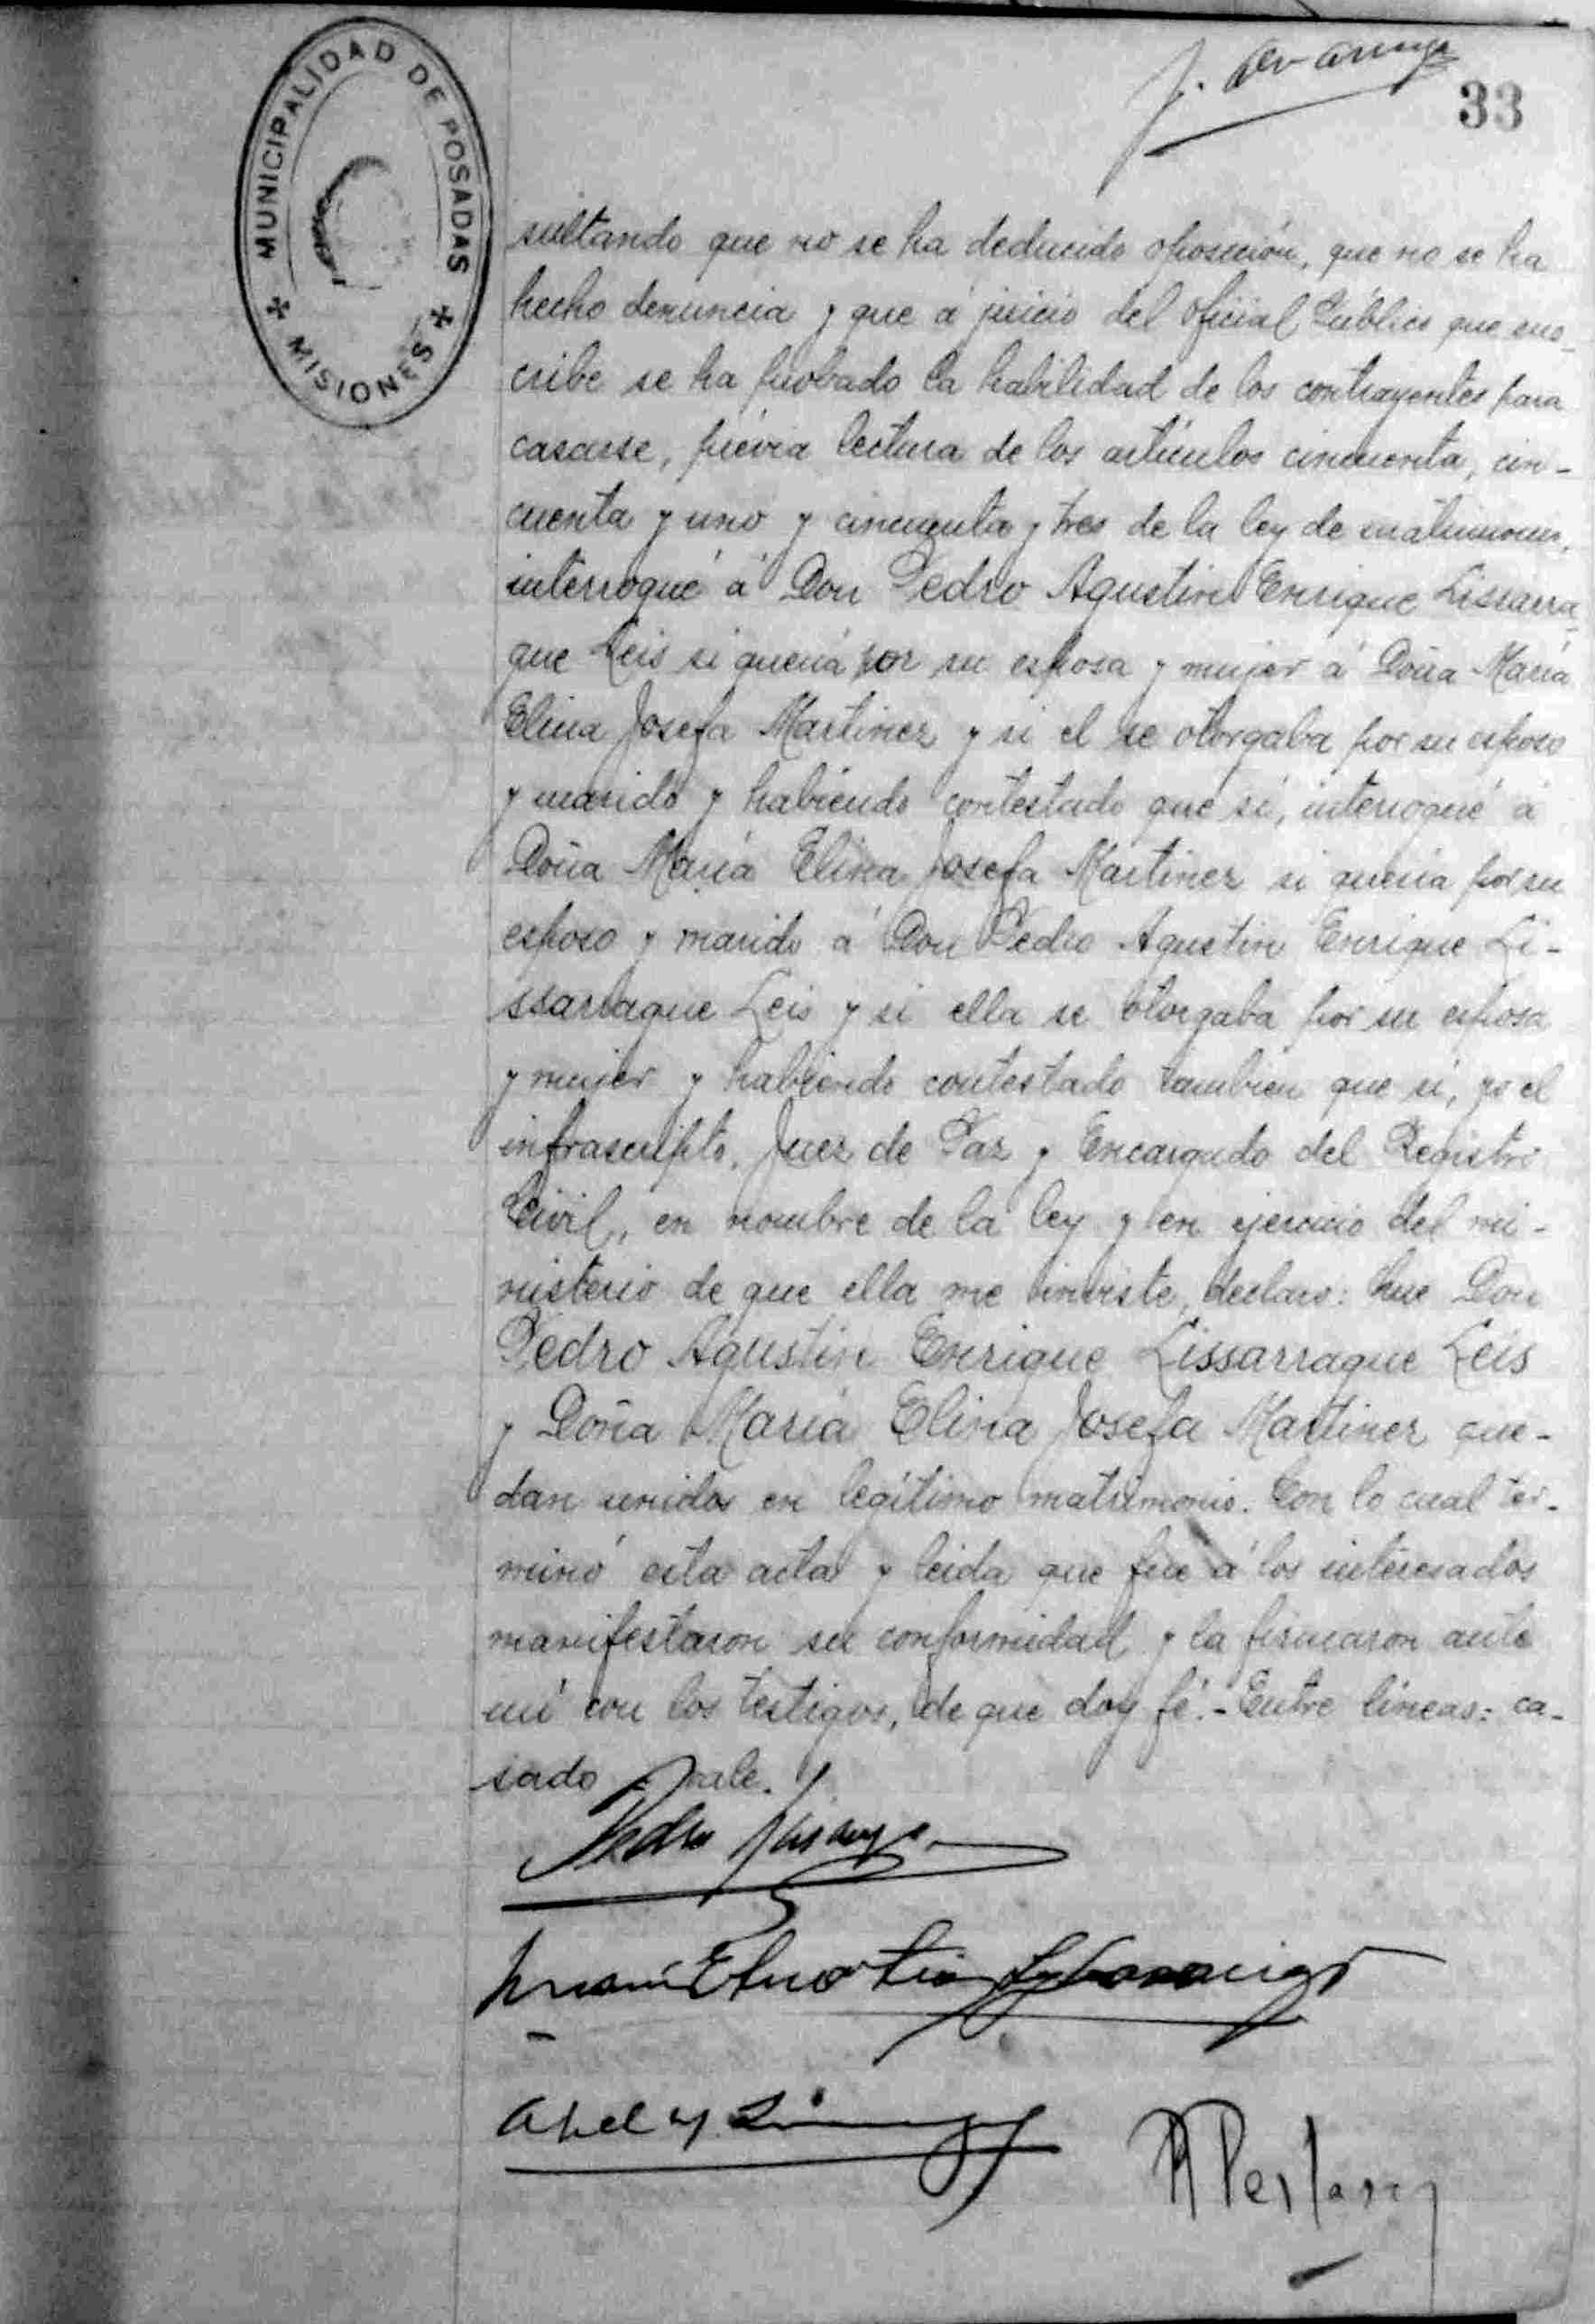 MUNICIPALIDAD DE POSADAS
MISIONES
33
sultando que no se ha deducido oposición, que no se ha
hecho denuncia y que á juicio del oficial Público que sus-
cribe se ha probado la habilidad de los contrayentes para
casarse, prévia lectura de los artículos cincuenta, cin-
cuenta y uno y cincuenta y tres de la ley de matrimonio,
interrogué á Don Pedro Agustin Enrique Lissarra-
gue Leis si quería por su esposa y mujer á Doña María
Elina Josefa Martinez y si el se otorgaba por su esposo
y marido y habiendo contestado que sí, interrogué á
Doña María Elina Josefa Martinez si quería por su
esposo y marido á Don Pedro Agustin Enrique Li-
ssarrague Leis y si ella se otorgaba por su esposa
y mujer y habiendo contestado tambien que sí, yo el
infrascripto, Juez de Paz y Encargado del Registro
Civil, en nombre de la ley y en ejercicio del mi-
nisterio de que ella me inviste, declaro: Que Don
Pedro Agustin Enrique Lissarrague Leis
y Doña María Elina Josefa Martinez que-
dan unidos en legítimo matrimonio. Con lo cual ter-
minó esta acta y leida que fue á los interesados
manifestaron su conformidad y la firmaron ante
mí con los testigos, de que doy fé.- Entre líneas: ca-
sado - vale.
Pedro